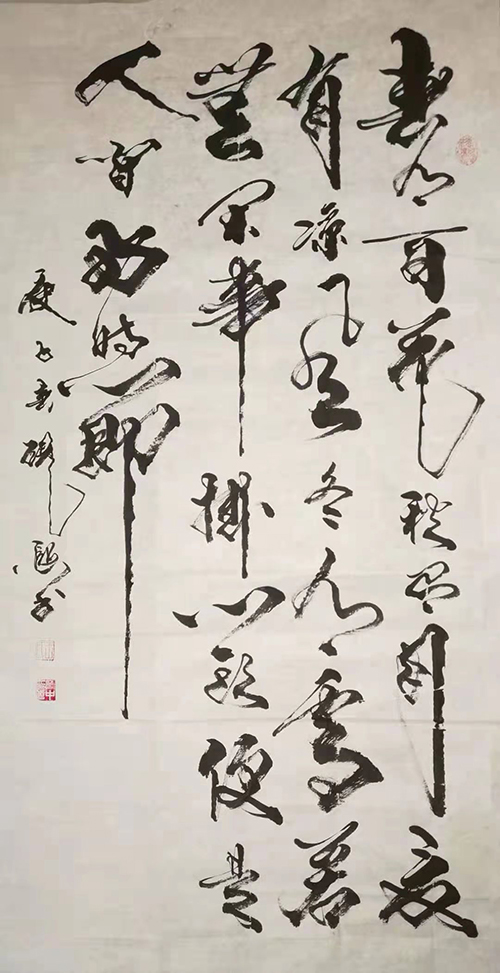 春有百花秋有月夏
有凉风冬有雪若
無闲事掛心头便是
人间好时节
庚子春书